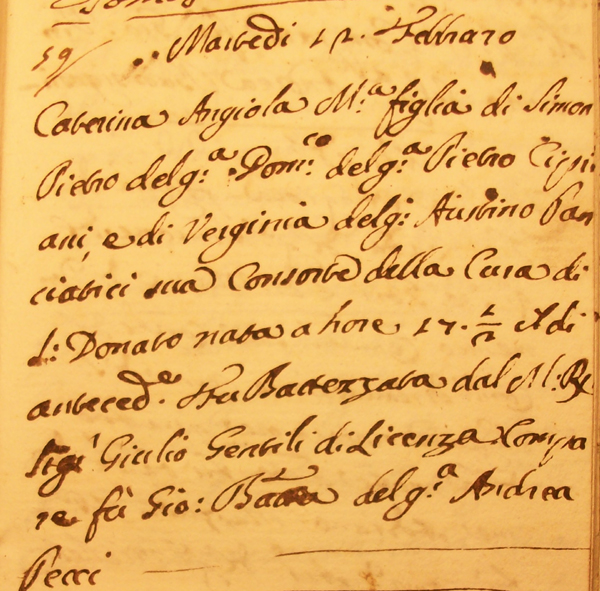 59
Martedì 12. Febbraro
Caterina Angiola M.ª figlia di Simon
Pietro del q.ª Dom.co del q.ª Pietro Cipri
ani, e di Verginia del q. Austino Pan
ciatici sua Consorte della Cura di
S: Donato nata a hore 17. 1/2 il di
anteced.e Fu Battezzata dal M: R.
Sig.r Giulio Gentili di Licenza Compa
re fù Gio: Batta del q.ª Andrea
Pecci